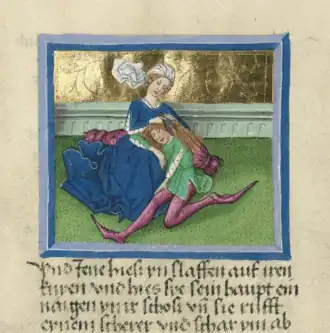 Und Jene hies yn slaffen auf iren
knien vnd hies sie sein haupt ein
naigen yn ir schos vn̄ sie rufft
einem scherer vnd schar ym ab